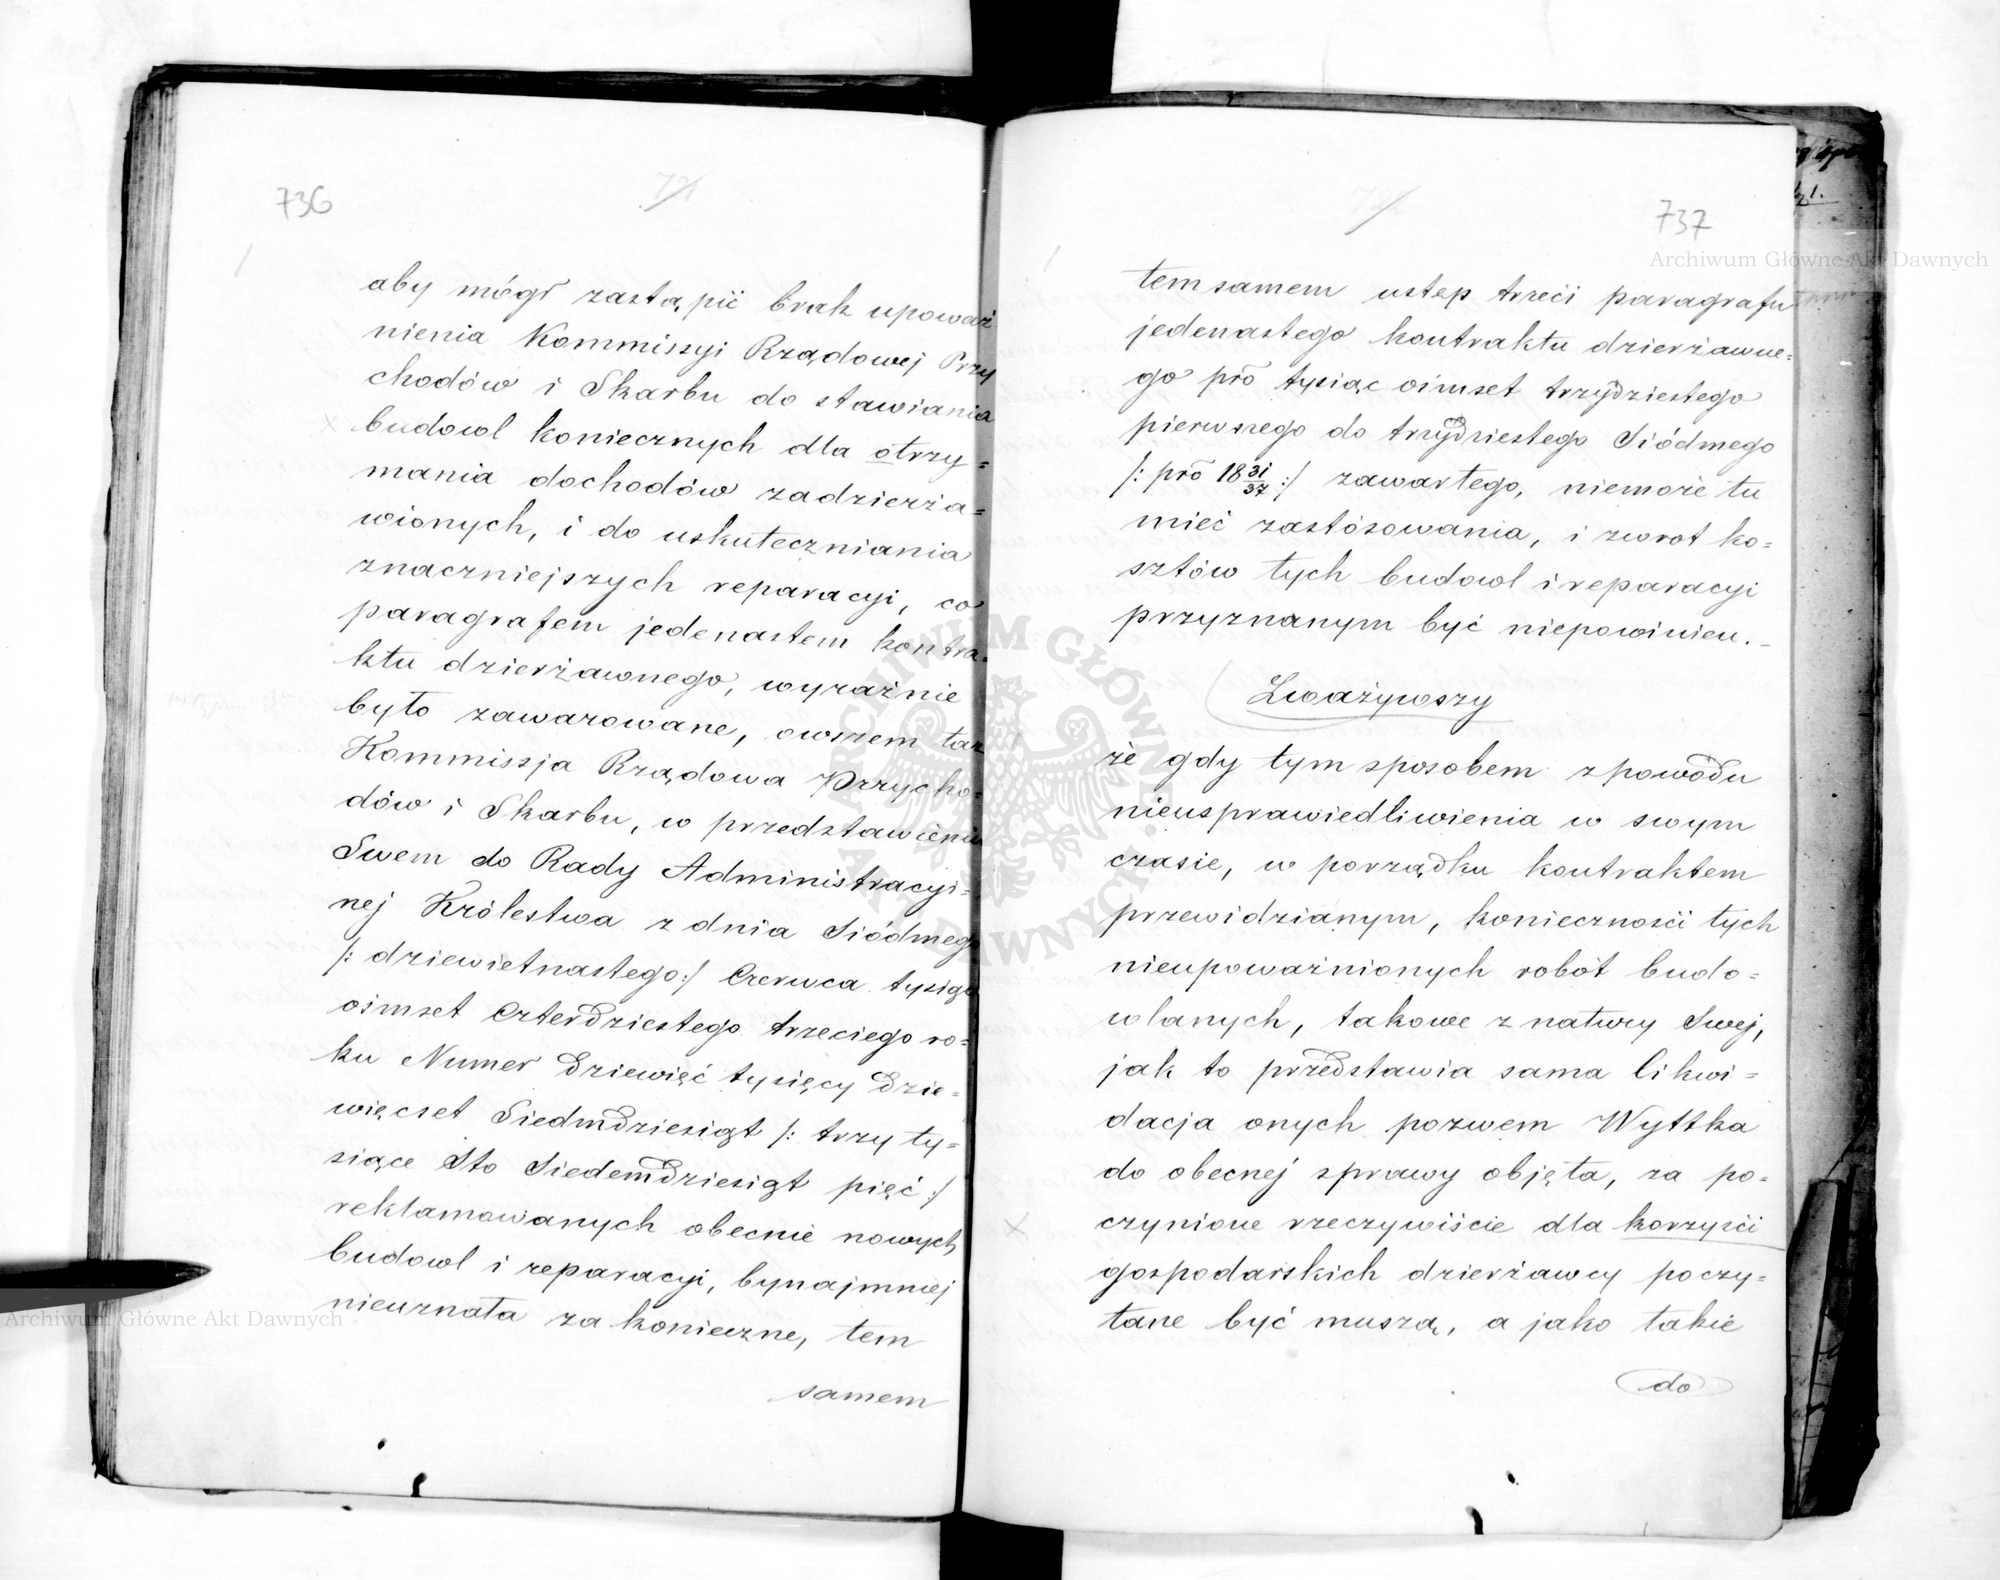 736
aby mógł zastąpić brak upoważ
nienia Kommissyi Rządowej Przy
chodów i Skarbu do stawiania
budowl koniecznych dla otrzy=
mania dochodów zadzierża=
wionych, i do uskuteczniania
znaczniejszych reparacyi, co
paragrafem jedenastem kontra=
ktu dzierżawnego, wyraźnie
było zawarowane, owszem taż
Kommissja Rządowa Przycho=
dów i Skarbu, w przedstawieniu
Swem do Rady Administracyi=
nej Królestwa z dnia Siódmego
/: dziewietnastego :/ Czerwca tysiąc
ośmset Czterdziestego trzeciego ro=
ku Numer Dziewięć tysięcy Dzie=
więcset Siedmdziesiąt /: trzy ty=
siące Sto Siedemdziesiąt pięć :/
reklamowanych obecnie nowych
budowl i reparacyi, bynajmniej
nieuznała za konieczne, tem
samem
737
tem samem ustep trzeci paragrafu
jedenastego kontraktu dzierżawne=
go pro tysiąc ośmset trzydziestego
pierwszego do trzydziestego Siódmego
/: pro 18 31/37 :/ zawartego, niemoże tu
mieć zastósowania, i zwrot ko=
sztów tych budowl i reparacyi
przyznanym być niepowinien. _
Zważywszy
że gdy tym sposobem z powodu
nieusprawiedliwienia w swym
czasie, w porządku kontraktem
przewidzianym, konieczności tych
nieupoważnionych robót budo=
wlanych, takowe z natury Swej,
jak to przedstawia sama likwi=
dacja onych pozwem Wyttka
do obecnej sprawy objęta, za po=
czynione rzeczywiście dla korzyści
gospodarskich dzierżawcy poczy=
tane być muszą, a jako takie
do
Archiwum Główne Akt Dawnych
Archiwum Główne Akt Dawnych
ARCHIWUM GŁÓWNE AKT DAWNYCH